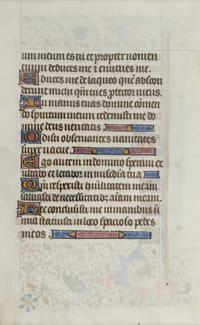 um meum es tu et propter nomen
tuum deduces me et enutries me.
Educes me de laqueo quem abscon
derunt michi quoniam tu es protector meus.
In manus tuas domine commen
do spiritum meum redemisti me do
mine deus veritatis
Odisti observantes vanitates
supervacue.
Ego autem in domino speravi ex
ultabo et letabor in misericordia tua
Quoniam respexisti humilitatem meam
salvasti de necessitatibus animam meam.
Nec conclusisti me in manibus ini
mici statuisti in loco spacioso pedes
meos.